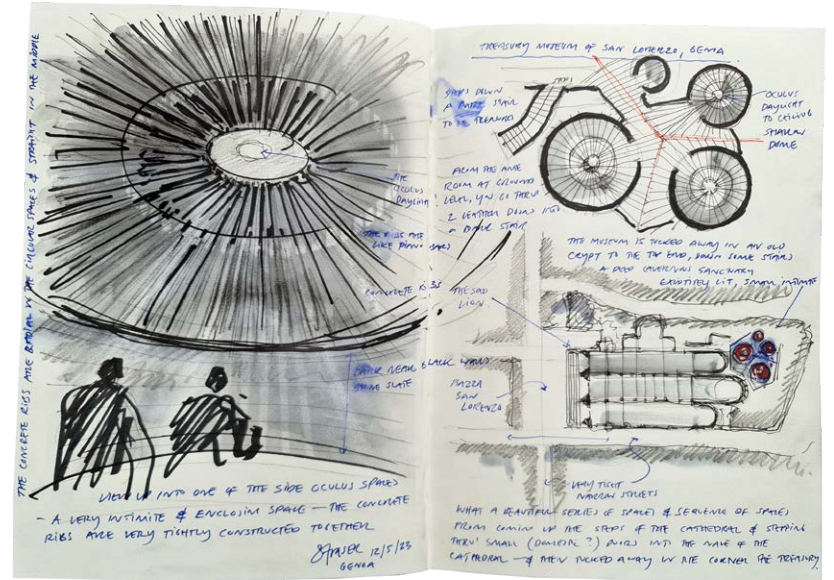 THE CONCRETE RIBS ARE RADIAL IN THE CIRCULAR SPACES & STRAIGHT IN THE MIDDLE
THE
OCULUS
DAYLIGHT
THE RIBS ARE
LIKE PIANO BARS
CONCRETE RIBS
DARK NEAR BLACK WALLS
STONE SLATE
VIEW UP INTO ONE OF THE SIDE OCULUS SPACES
- A VERY INTIMITE & ENCLOSIN SPACE - THE CONCRETE
RIBS ARE VERY TIGHTLY CONSTRUCTED TOGETHER
12/5/23
GENOA
TREASURY MUSEUM OF SAN LORENZO, GENOA
STEPS DOWN
A DARK STAIR
TO THE TREASURES
STEPS
OCULUS
DAYLIGHT
TO CEILING
SHALLOW
DOME
FROM THE ANTE
ROOM AT GROUND
LEVEL, YOU GO THRU'
2 LEATHER DOORS INTO
A DARK STAIR
THE MUSEUM IS TUCKED AWAY IN AN OLD
CRYPT TO THE TOP END, DOWN SOME STAIRS
A DEEP CAVERNOUS SANCTUARY
LIT, SMALL INTIMATE
THE SAD
LION
PIAZZA
SAN
LORENZO
VERY TIGHT
NARROW STREETS
WHAT A BEAUTIFUL SERIES OF SPACES & SEQUENCE OF SPACES
FROM COMING UP THE STEPS OF THE CATHEDRAL & STEPPING
THRU' SMALL (DOMESTIC?) DOORS INTO THE NAVE OF THE
CATHEDRAL - & THEN TUCKED AWAY IN THE CORNER THE TREASURY.